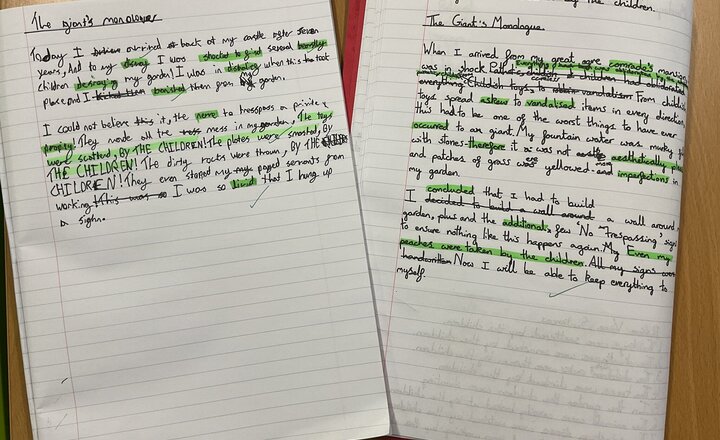 The Giant's monologue
Today I arrived at back at my castle after seven
years, And to my dismay I was shocked to find several beastly
children destroying my garden! I was in disbelief when this took
place, and I banished them from my garden.
I could not believe this it, the nerve to tresspass a private
propity! They made all the mess in my garden, The toys
were scatterd, BY THE CHILDREN! The plates were smashed, BY
THE CHILDREN! The dirty rocks were thrown, BY THE
CHILDREN! They even stopped my paged servants from
working. This was so I was so livid that I hung up
a sighn.
the children.
The Giant's Monologue
When I arrived from my great ogre comrade's mansion,
was in shock.
everything! Childish toys, to vandalism. From childish
toys spread askew to vandalised items in every direction,
this had to be one of the worst things to have ever
occurred to an giant. My fountain water was murky
with stones therefore it was not aesthetically
and patches of grass were yellowed and imperfections in
my garden.
I concluded that I had to build
decided to build a wall around a wall around
garden, plus and the additional, few "No Trespassing" signs
to ensure nothing like this happens again. My Even my
peaches were taken by the children. All my signs were
handwritten Now I will be able to keep everything to
myself.